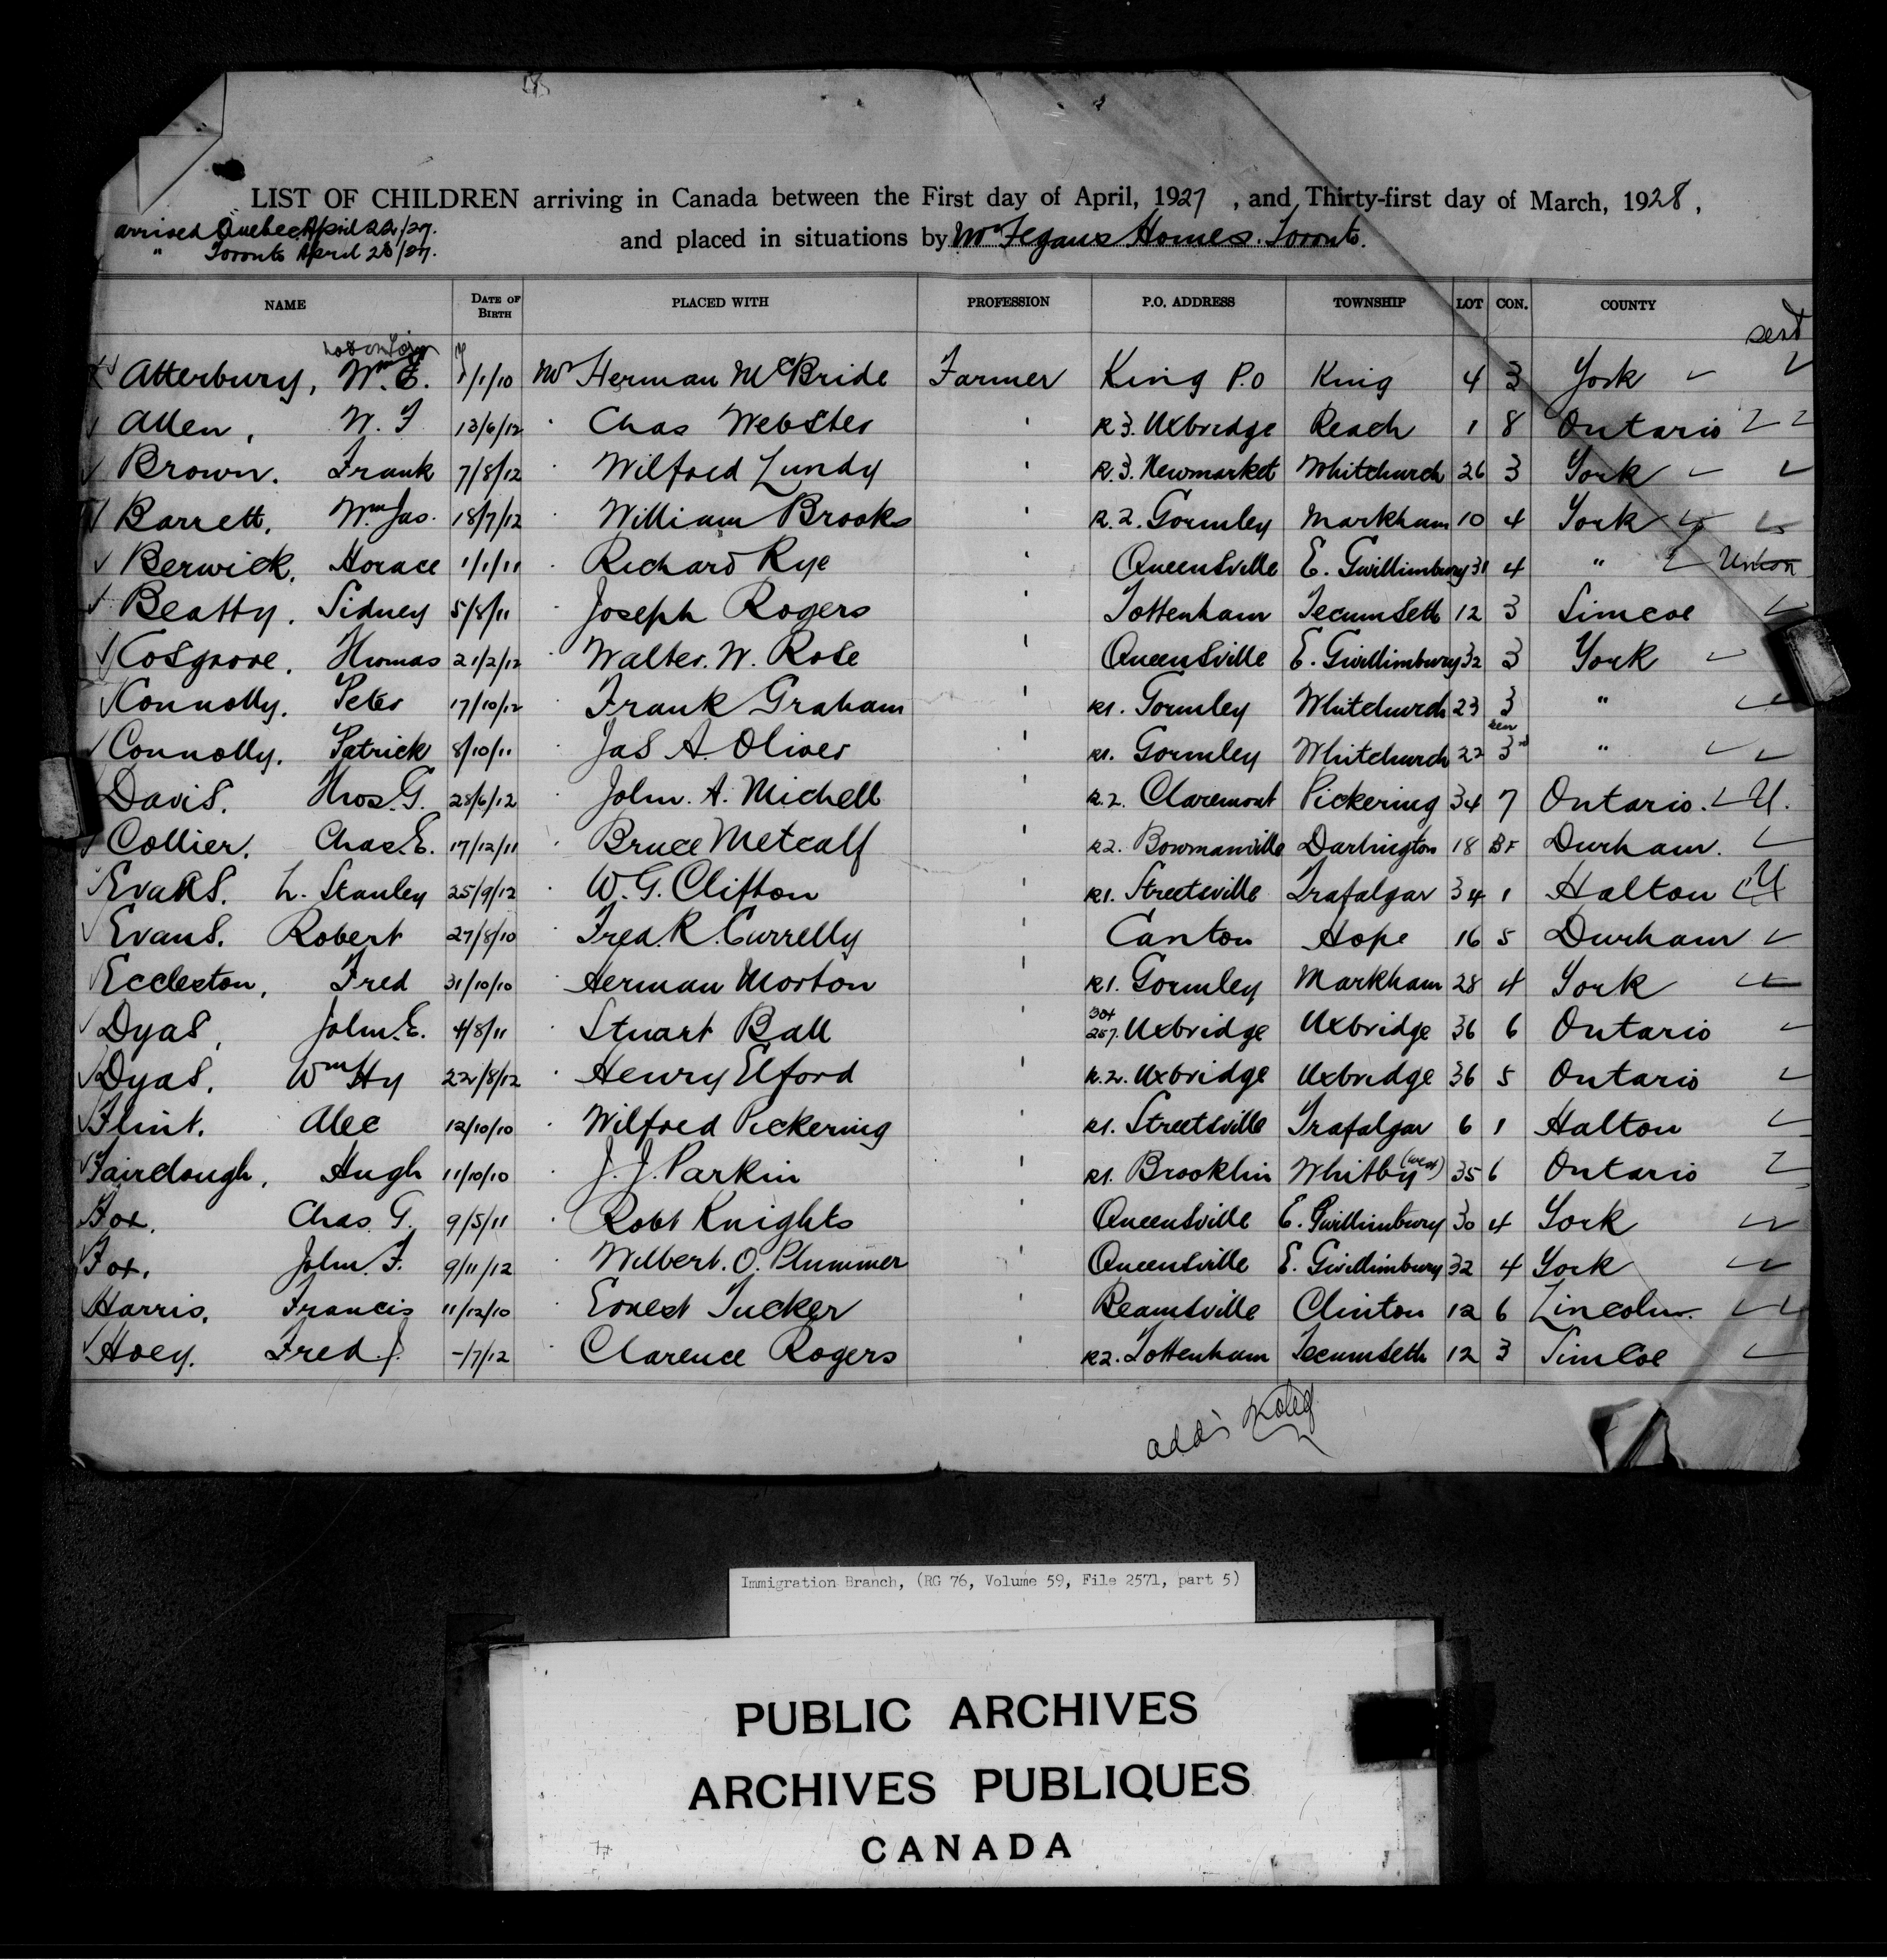 LIST OF CHILDREN arriving in Canada between the First day of April, 1927, and Thirty-first day of March, 1928,
arrived Quebec April 22/27.
" Toronto April 23/27.
and placed in situations by Mr Fegans Homes. Toronto.
NAME DATE OF BIRTH PLACED WITH PROFESSION P.O. ADDRESS TOWNSHIP LOT CON. COUNTY
sent
Atterbury, Wm E. 1/1/10 Mr Herman McBride Farmer King P.O King 4 3 York
Allen, W. J 13/6/12 Chas Webster ' R3. Uxbridge Reach 1 8 Ontario
Brown. Frank 7/8/12 Wilfred Lundy ' R.3. Newmarket Whitchurch 26 3 York
Barrett, Wm Jas. 18/7/12 William Brooks ' R.2. Gormley Markham 10 4 York
Berwick, Horace 1/1/11 Richard Rye ' Queensville E. Gwillimbury 31 4 " Union
Beatty, Sidney 5/8/11 Joseph Rogers ' Tottenham Tecumseth 12 3 Simcoe
Cosgrove, Thomas 21/2/12 Walter. W. Rose ' Queensville E. Gwillimbury 32 3 York
Connolly. Peter 17/10/12 Frank Graham ' R1. Gormley Whitchurch 23 3 "
Connolly. Patrick 8/10/11 Jas A. Oliver ' R1. Gormley Whitchurch 22 3rd "
Davis. Thos. G. 28/6/12 John. A. Michell ' R.2. Claremont Pickering 34 7 Ontario. U.
Collier. Chas. E. 17/12/11 Bruce Metcalf ' R2. Bowmanville Darlington 18 BF Durham.
Evans. L. Stanley 25/9/12 W. G. Clifton ' R1. Streetsville Trafalgar 34 1 Halton U
Evans. Robert 27/8/10 Fred. R. Currelly ' Canton Hope 16 5 Durham
Eccleston, Fred 31/10/10 Herman Morton ' R1. Gormley Markham 28 4 York
Dyas, John. E. 4/8/11 Stuart Ball ' 257. Uxbridge Uxbridge 36 6 Ontario
Dyas. Wm Hy 22/8/12 Henry Elford ' R.2. Uxbridge Uxbridge 36 5 Ontario
Flint. Alec 12/10/10 Wilfred Pickering ' R1. Streetsville Trafalgar 6 1 Halton
Fairclough, Hugh 11/10/10 J. J. Parkin ' R1. Brooklin Whitby (West) 35 6 Ontario
Fox. Chas. G. 9/5/11 Robt Knights ' Queensville E. Gwillimbury 30 4 York
Fox. John. F. 9/11/12 Wilbert. O. Plummer ' Queensville E. Gwillimbury 32 4 York
Harris. Francis 11/12/10 Ernest Tucker ' Beamsville Clinton 12 6 Lincoln.
Hoey. Fred. J. -/7/12 Clarence Rogers ' R2. Tottenham Tecumseth 12 3 Simcoe
Immigration Branch, (RG 76, Volume 59, File 2571, part 5)
PUBLIC ARCHIVES
ARCHIVES PUBLIQUES
CANADA